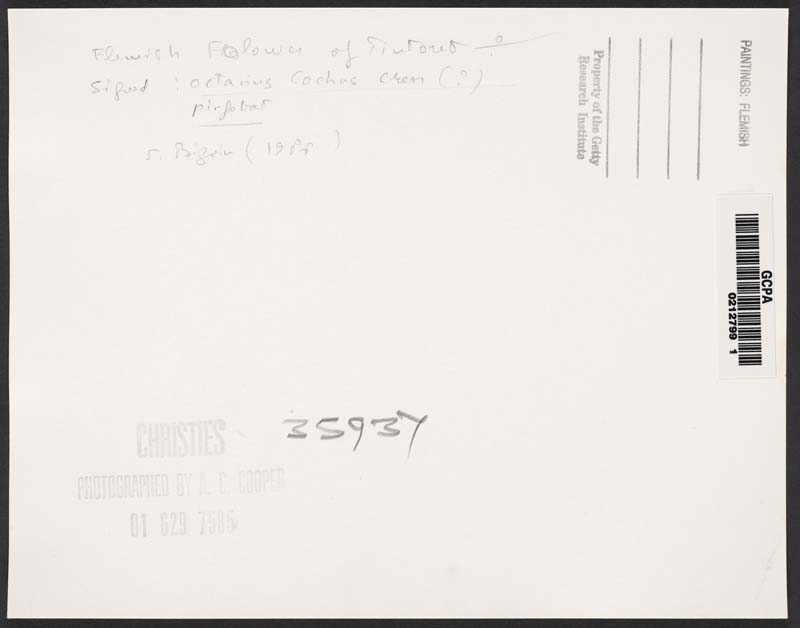 Flemish Follower of Tintoret ?
Signed : octavius Cochus cren (?)
pingebat
(198 )
Property of the Getty
Research Institute
PAINTINGS: FLEMISH
GCPA
0212799 1
35937
CHRISTIES
PHOTOGRAPHED BY A. C. COOPER
01 629 7585